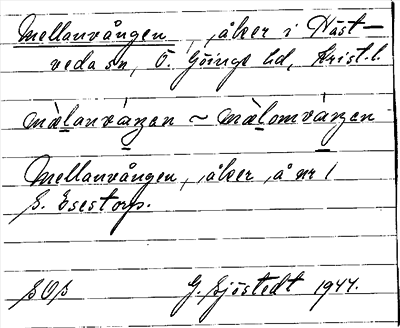 Mellanvången, åker i Näst-
veda sn, Ö. Göinge hd, Krist. l.
mälanváŋan ~ mälomváŋan
Mellanvången, åker å nr 1
S. Esestorp.
SOS G. Sjöstedt 1944.